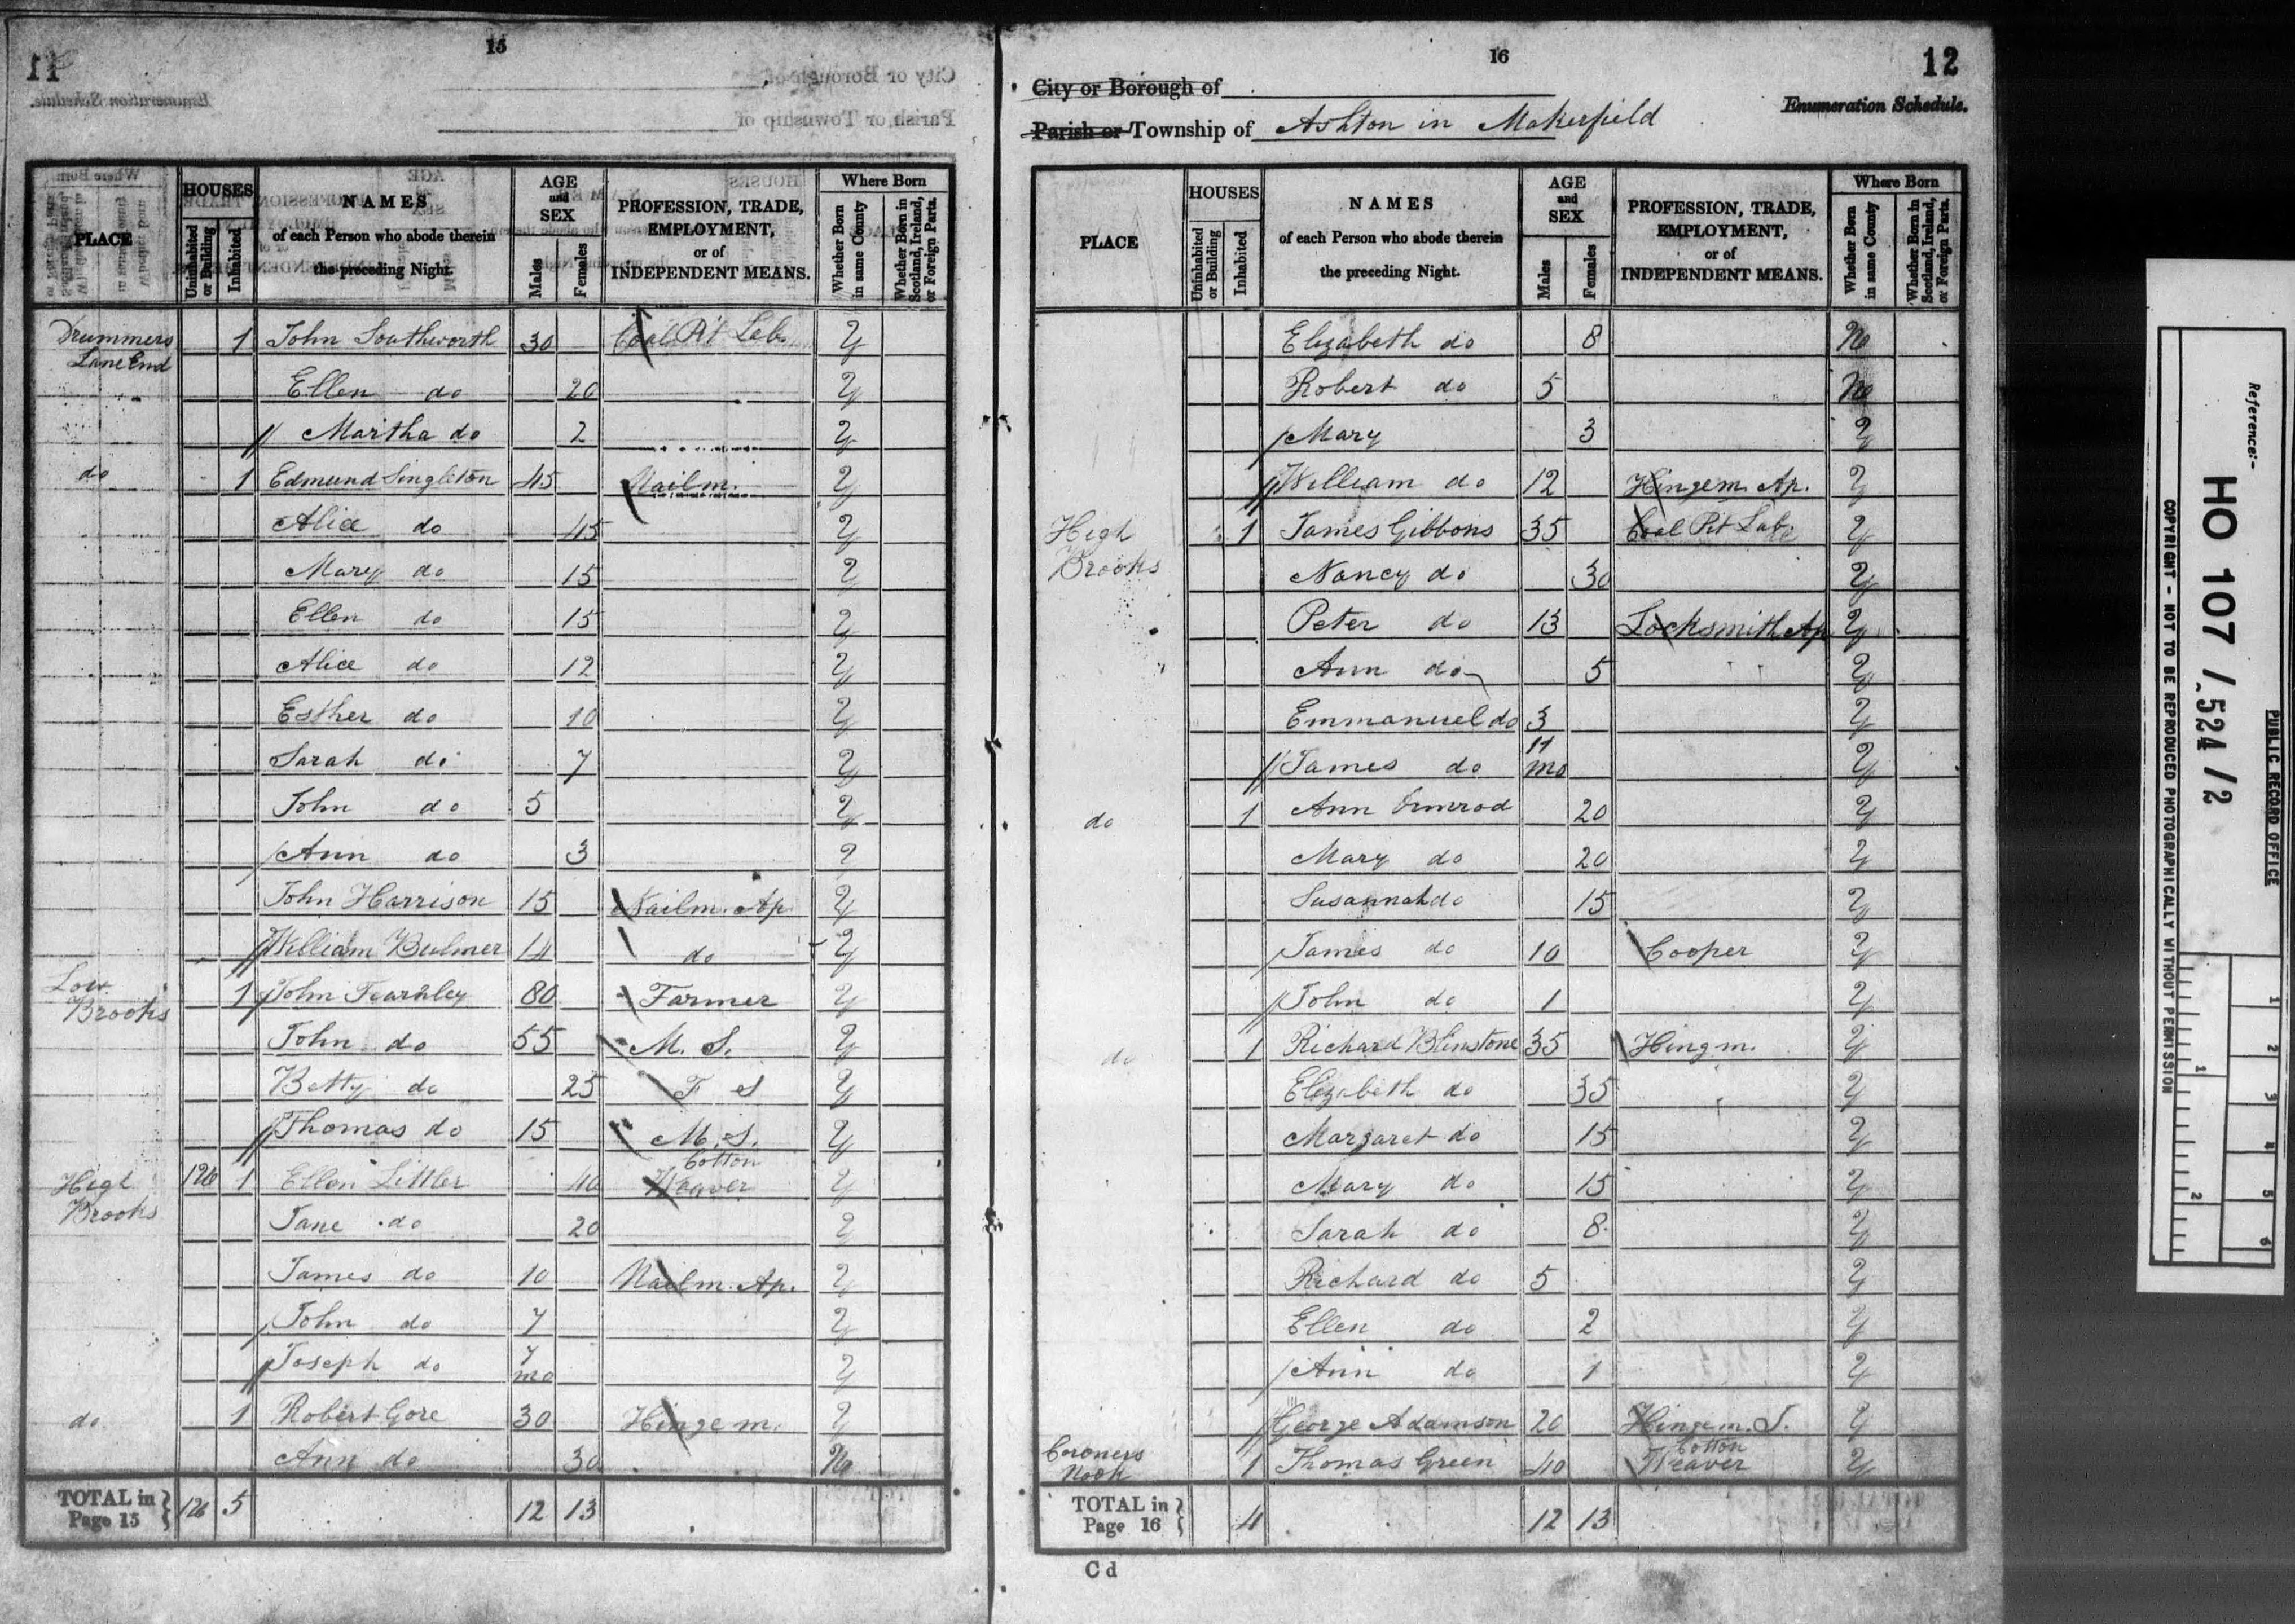 11
15
City or Borough of
Parish or Township of
Enumeration Schedule.
PLACE
HOUSES
Uninhabited or Building
Inhabited
NAMES
of each Person who abode therein
the preceding Night.
AGE and SEX
Males
Females
PROFESSION, TRADE,
EMPLOYMENT,
or of
INDEPENDENT MEANS.
Where Born
Whether Born in same County
Whether Born in Scotland, Ireland, or Foreign Parts.
Drummers Lane End 1 John Southworth 30 Coal Pit Lab. Y
Ellen do 20 Y
Martha do 2 Y
do 1 Edmund Singleton 45 Nailm. Y
Alice do 45 Y
Mary do 15 Y
Ellen do 15 Y
Alice do 12 Y
Esther do 10 Y
Sarah do 7 Y
John do 5 Y
Ann do 3 Y
John Harrison 15 Nailm. Ap. Y
William Bulmer 14 do Y
Low Brooks 1 John Fearnley 80 Farmer Y
John do 55 M. S. Y
Betty do 25 F S Y
Thomas do 15 M. S. Y
High Brooks 1 Ellen Littler 40 Cotton Weaver Y
Jane do 20 Y
James do 10 Nailm. Ap. Y
John do 7 Y
Joseph do 7 mo Y
do 1 Robert Gore 30 Hinge m. Y
Ann do 30 No
TOTAL in Page 15 5 12 13
16
12
City or Borough of
Parish or Township of Ashton in Makerfield
Enumeration Schedule.
PLACE
HOUSES
Uninhabited or Building
Inhabited
NAMES
of each Person who abode therein
the preceding Night.
AGE and SEX
Males
Females
PROFESSION, TRADE,
EMPLOYMENT,
or of
INDEPENDENT MEANS.
Where Born
Whether Born in same County
Whether Born in Scotland, Ireland, or Foreign Parts.
Elizabeth do 8 No
Robert do 5 No
Mary 3 Y
William do 12 Hingem. Ap. Y
High Brooks 1 James Gibbons 35 Coal Pit Lab. Y
Nancy do 30 Y
Peter do 13 Locksmith Ap Y
Ann do 5 Y
Emmanuel do 3 Y
James do 11 mo Y
do 1 Ann Ormrod 20 Y
Mary do 20 Y
Susannah do 15 Y
James do 10 Cooper Y
John do 1 Y
do 1 Richard Blinstone 35 Hingm. Y
Elizabeth do 35 Y
Margaret do 15 Y
Mary do 15 Y
Sarah do 8 Y
Richard do 5 Y
Ellen do 2 Y
Ann do 1 Y
George Adamson 20 Hinge m. J. Y
Coroners Nook 1 Thomas Green 40 Cotton Weaver Y
TOTAL in Page 16 4 12 13
C d
Reference:-
HO 107 / 524 / 2
PUBLIC RECORD OFFICE
COPYRIGHT - NOT TO BE REPRODUCED PHOTOGRAPHICALLY WITHOUT PERMISSION
1
2
1
2
3
4
5
6